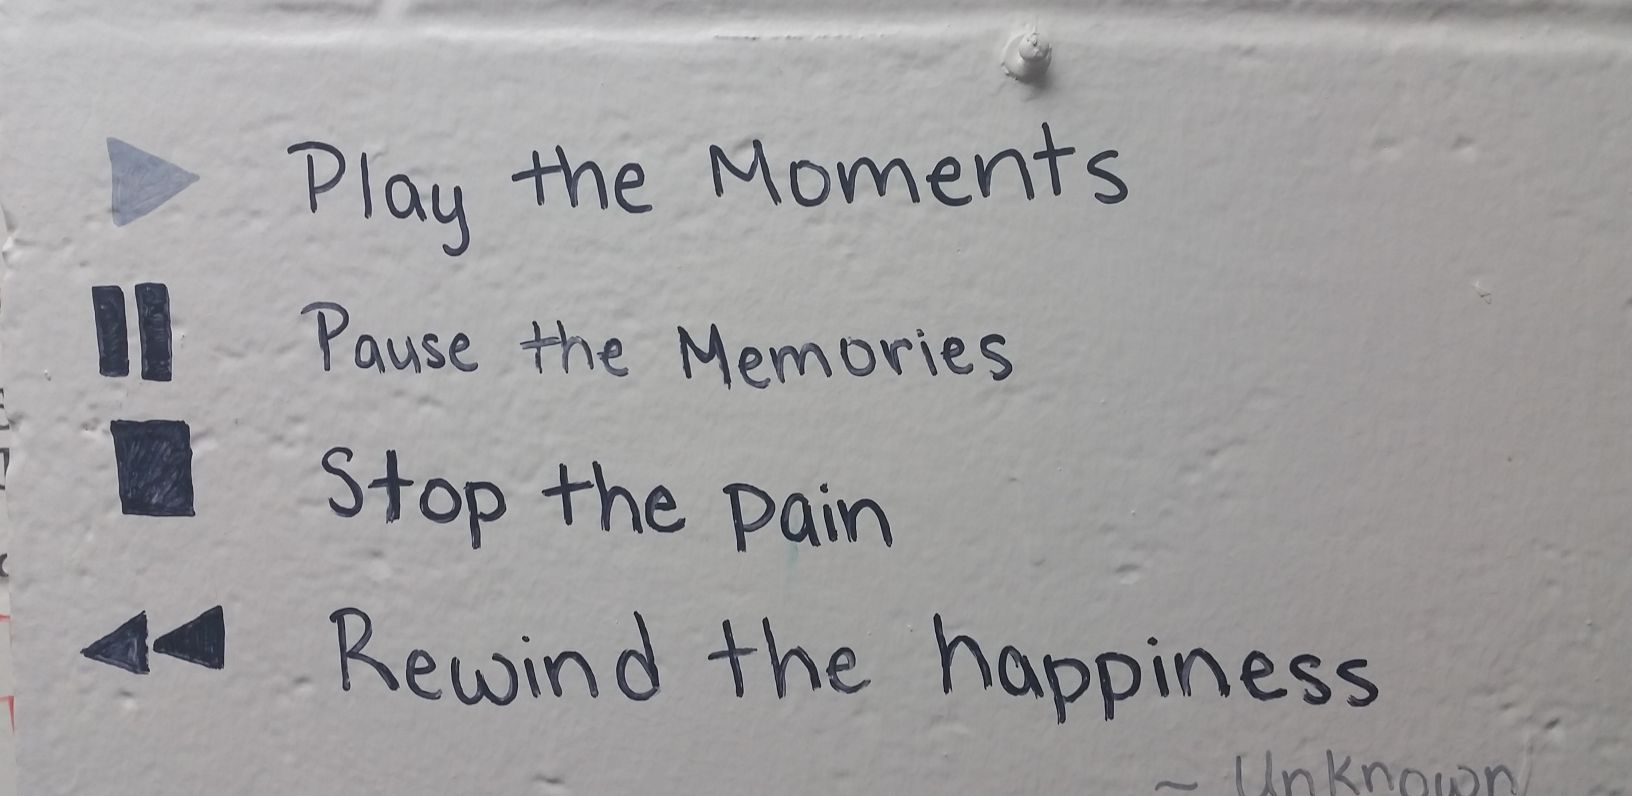 Play the Moments
Pause the Memories
Stop the pain
Rewind the happiness
~ Unknown